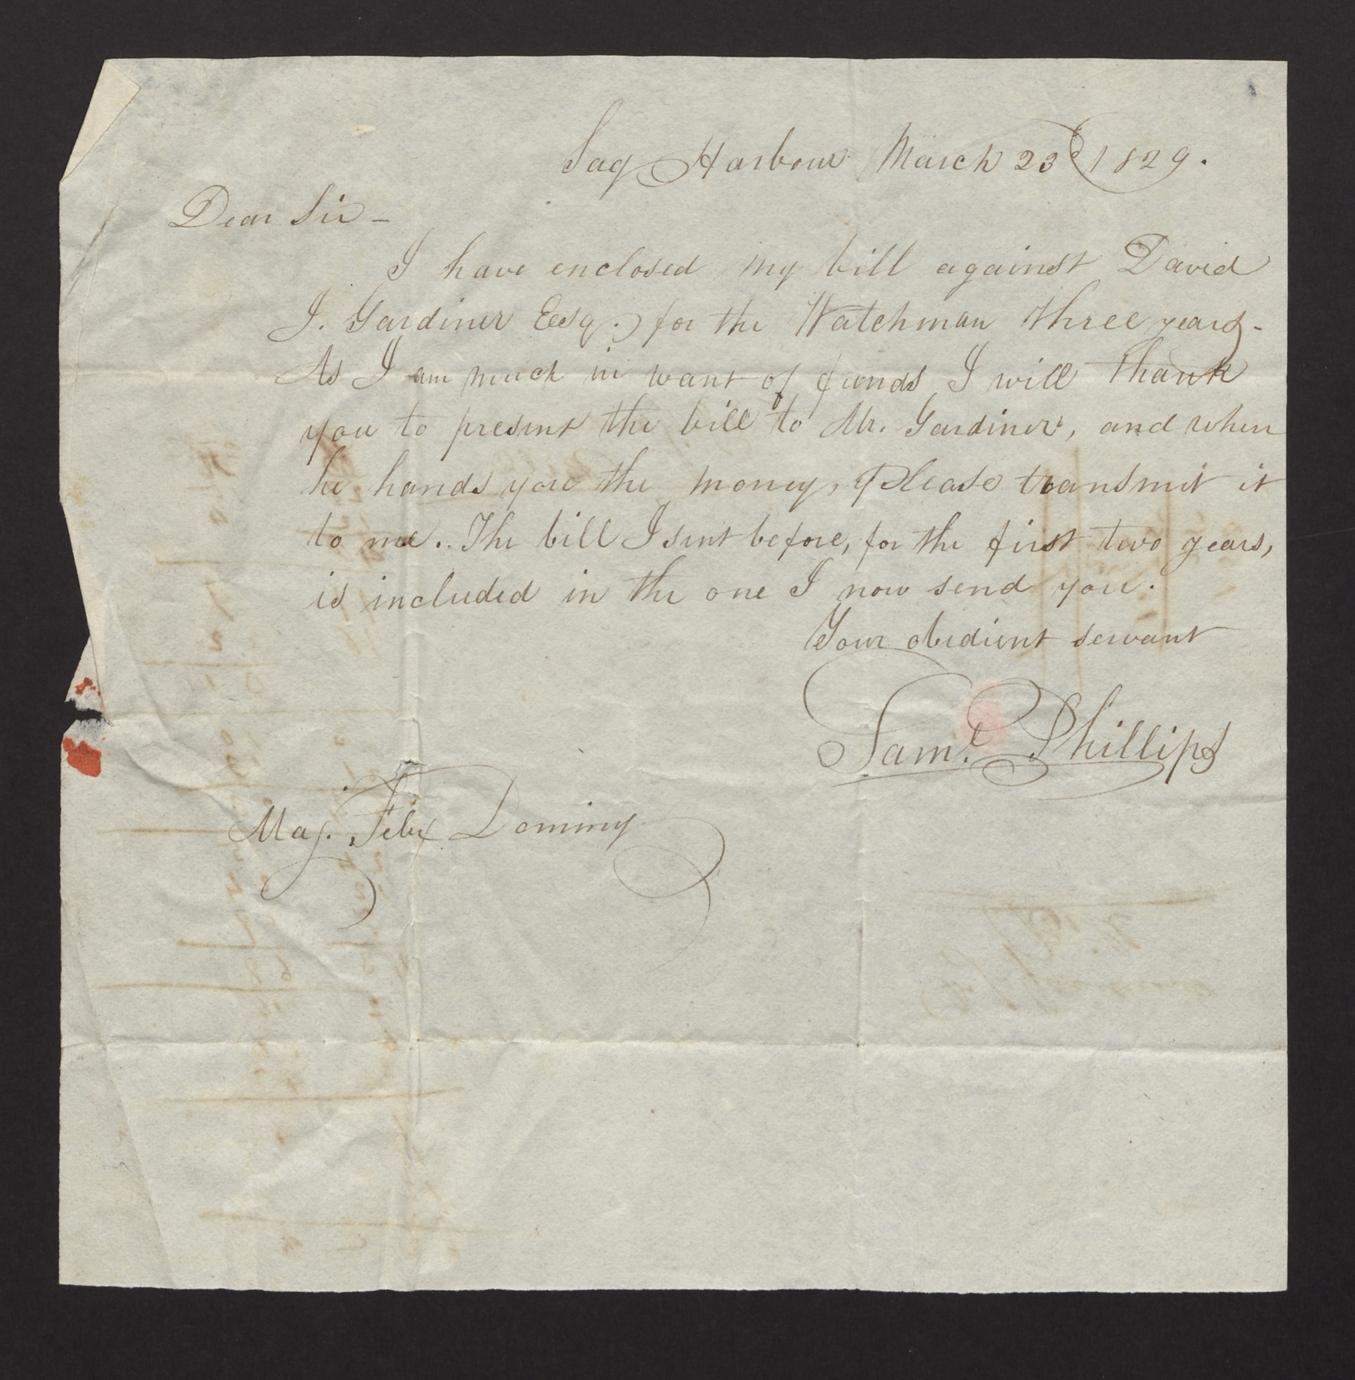 Sag Harbour March 23d 1829.
Dear Sir -
I have enclosed my bill against David
J. Gardiner Esq. for the Watchman three years -
As I am much in want of funds I will thank
you to present the bill to Mr. Gardiner, and when
he hands you the money, please transmit it
to me. The bill I sent before, for the first two years,
is included in the one I now send you.
Your obedient servant
Saml. Phillips
Maj. Felix Dominy